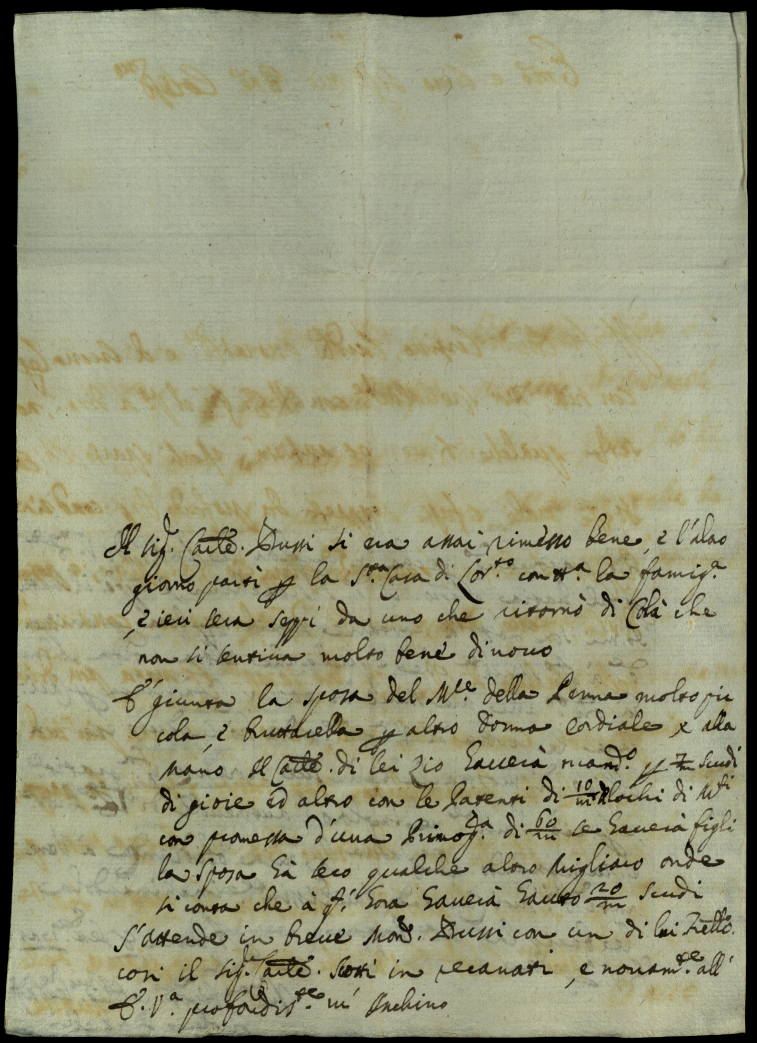 Il Sig.r Card.le Bussi si era assai rimesso bene, e l'altro
giorno partì p la S.ta Casa di Lor.to con tt.a la famig.a
, e ieri sera seppi da uno che ritornò di Colà che
non si sentiva molto bene di novo
E' giunta la sposa del M.se della Penna molto pic
cola, e bruttarella p altro donna cordiale, e alla
mano Il Card.le di lei Zio haverà mand.o p 7/m scudi
di gioie ed altro con le Patenti di 10/m lochi di M.ti
con promessa d'una Primog.ra di 60/m se haverà figli
la sposa hà seco qualche altro Migliaro onde
si conta che à q.st' hora haverà hauto 20/m scudi
S'attende in breve Mons.r Bussi con un di lui Fratello.
così il Sig.r Card.le Scotti in recanati, e novam.te all'
E. V.a profond.is.te m'inchino